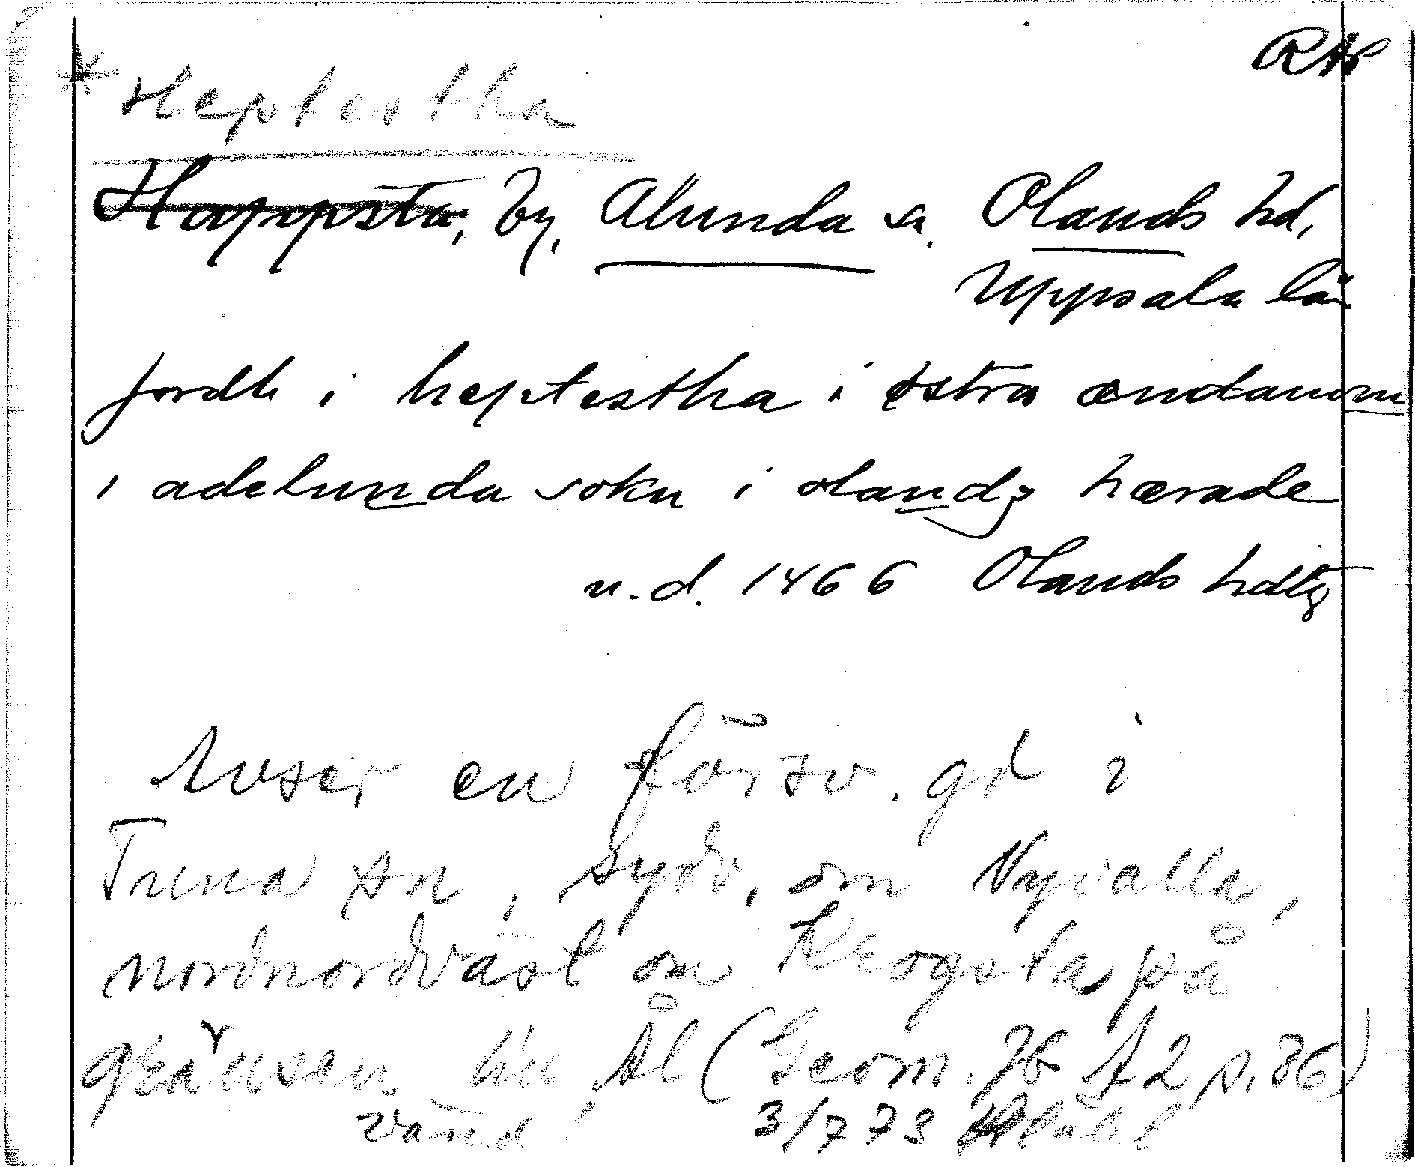 RAP
* Heptestha
Happsta, by, Alunda sn. Olands hd,
Uppsala län
jordh i heptestha i østra ændanom
i adelunda sokn i olandz hærade
u.d. 1466 Olands hdtg
Avser en försv. gd i
Tuna sn, sydv. om Nyvalla,
nordnordväst om Krogsta, på
gränsen till Ål (Geom. Jb A2 s. 86)
Vänd! 3/7 73